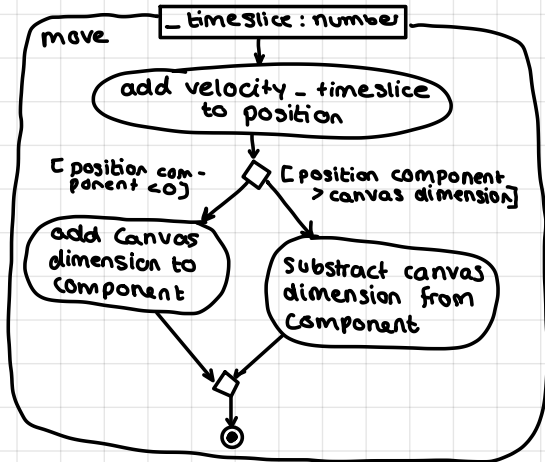 _ timeslice : number
move
add velocity _ timeslice
to position
[ position com-
ponent <0]
[ position component
> canvas dimension]
add Canvas
dimension to
component
substract canvas
dimension from
component